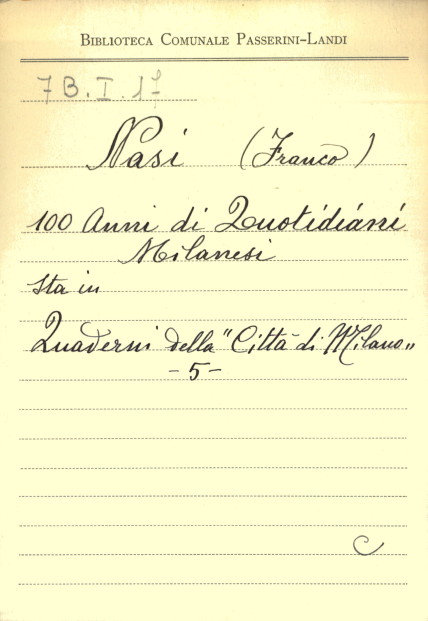 BIBLIOTECA COMUNALE PASSERINI-LANDI
7 B. I. 17
Nasi (Franco)
100 Anni di Quotidiani
Milanesi
Sta in
Quaderni della "Città di Milano"
- 5 -
C